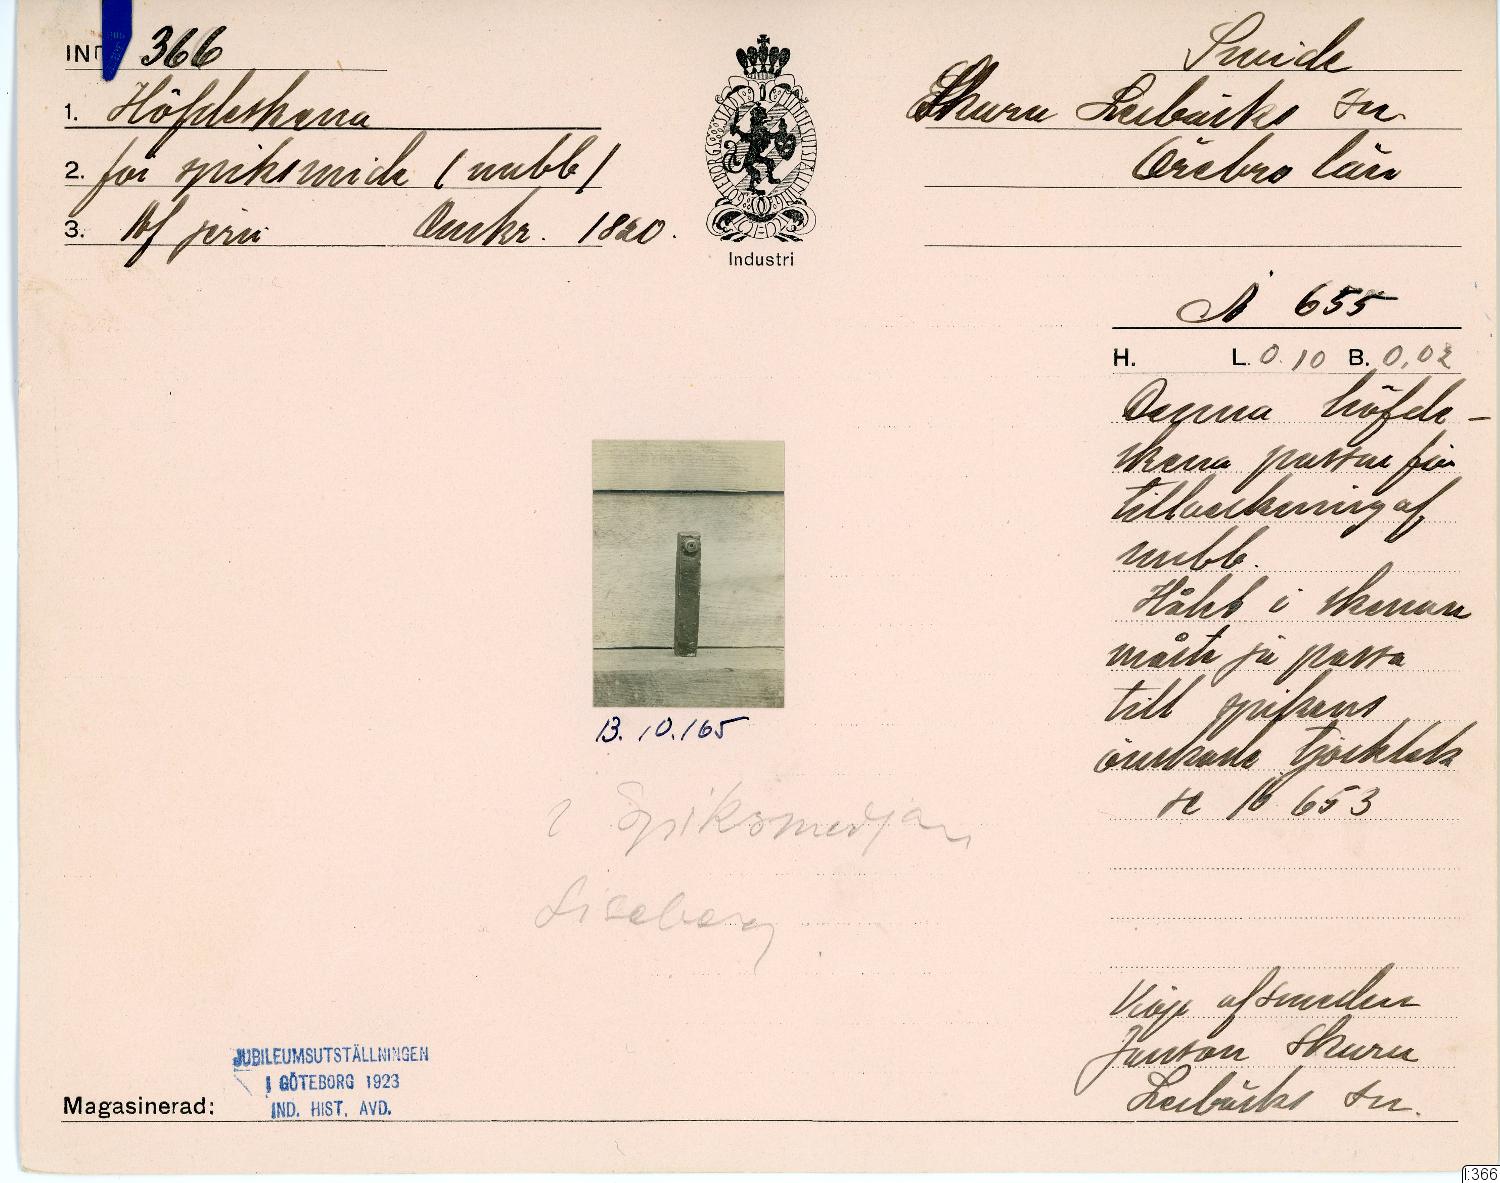 IND 366
1. Höfdeskena
2. för spiksmide (nubb)
3. Af jern Omkr. 1820.
Industri
Smide
Skuru Lerbäcks sn
Örebro län
N 655
H. L. 0.10 B. 0,02
Denna höfde-
skena passar för
tillverkning af
nubb.
Hålet i skenan
måste ju passa
till spikens
önskade tjocklek
se N 653
Köpt af smeden
Janson Skuru
Lerbäcks sn.
13.10.165
i Spiksmedjan
Liseberg
JUBILEUMSUTSTÄLLNINGEN
I GÖTEBORG 1923
IND. HIST. AVD.
Magasinerad:
I:366